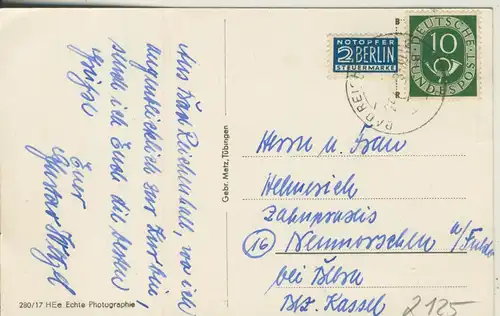 Aus Bad Reichenhall, wo ich
augenblicklich zur Kur bin,
sende ich Euch die besten
Grüße
Euer
Gustav
280/17 HEe Echte Photographie
Gebr. Metz, Tübingen
NOTOPFER
2 BERLIN
STEUERMARKE
DEUTSCHE BUNDESPOST
10
BAD REI
Herrn u. Frau
Helmerich
Zahnpraxis
(16) Neumorschen a/Fulda
bei Bebra
Bez. Kassel
2125